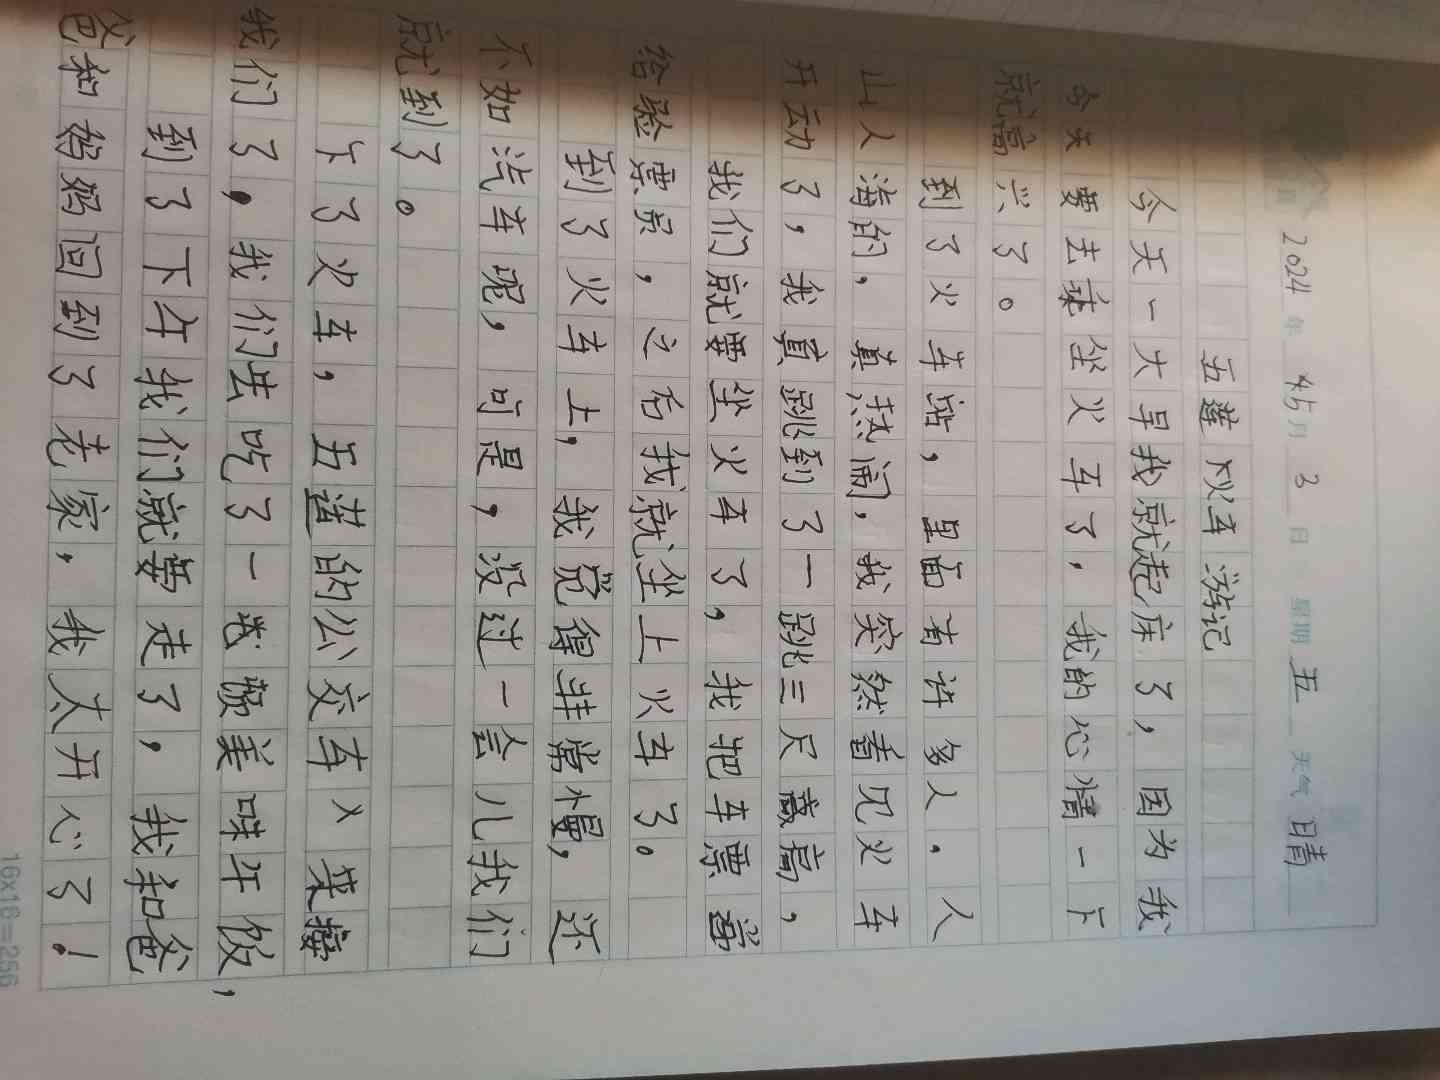 2024年 5月 3日 星期五 天气晴
五莲火车游记
今天一大早我就起床了，因为我
今天要去乘坐火车了，我的心情一下
就高兴了。
到了火车站，里面有许多人。人
山人海的，真热闹，我突然看见火车
开动了，我真跳到了一跳三尺高，
我们就要坐火车了，我把车票
给验票员，之后我就坐上火车了。
到了火车上，我觉得非常慢，还
不如汽车呢，可是，没过一会儿我们
就到了。
下了火车，五莲的公交车来接
我们了，我们去吃了一美味午饭，
到了下午我们就要走了，我和爸
爸和妈妈回到了老家，我太开心了！
16x16=256